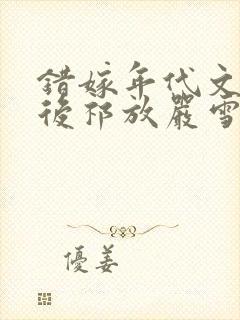 錯嫁年代文
後祁放嚴雪
優姜